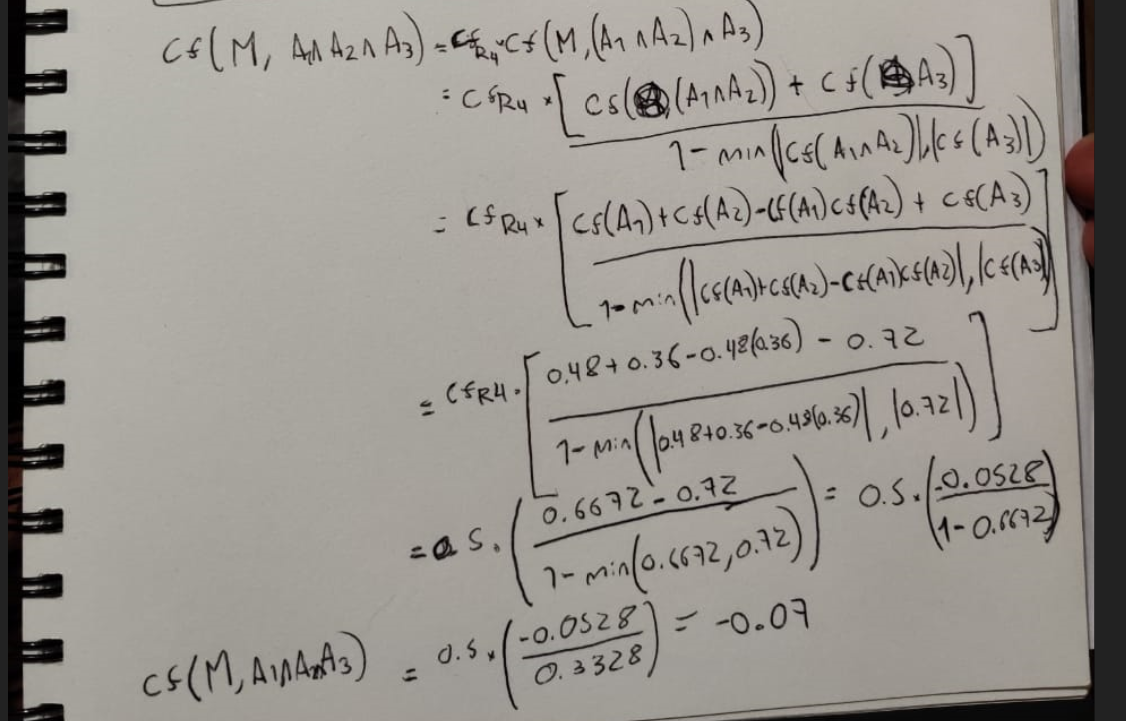 Cf(M, A1∧A2∧A3) = Cf_R4 × Cf(M, (A1∧A2)∧A3)
= Cf_R4 × [ Cf((A1∧A2)) + Cf(A3) ]
1 - min(|Cf(A1∧A2)|, |Cf(A3)|)
= Cf_R4 × [ Cf(A1) + Cf(A2) - Cf(A1)Cf(A2) + Cf(A3)
1 - min(|Cf(A1)+Cf(A2)-Cf(A1)Cf(A2)|, |Cf(A3)| ]
= Cf_R4 · [ 0.48 + 0.36 - 0.48(0.36) - 0.72
1 - min(|0.48+0.36-0.48(0.36)|, |0.72|) ]
= 0.5 · ( 0.6672 - 0.72 ) = 0.5 · ( -0.0528
1 - min(0.6672, 0.72) ) (1 - 0.6672)
Cf(M, A1∧A2∧A3) = 0.5 × ( -0.0528 ) = -0.07
0.3328